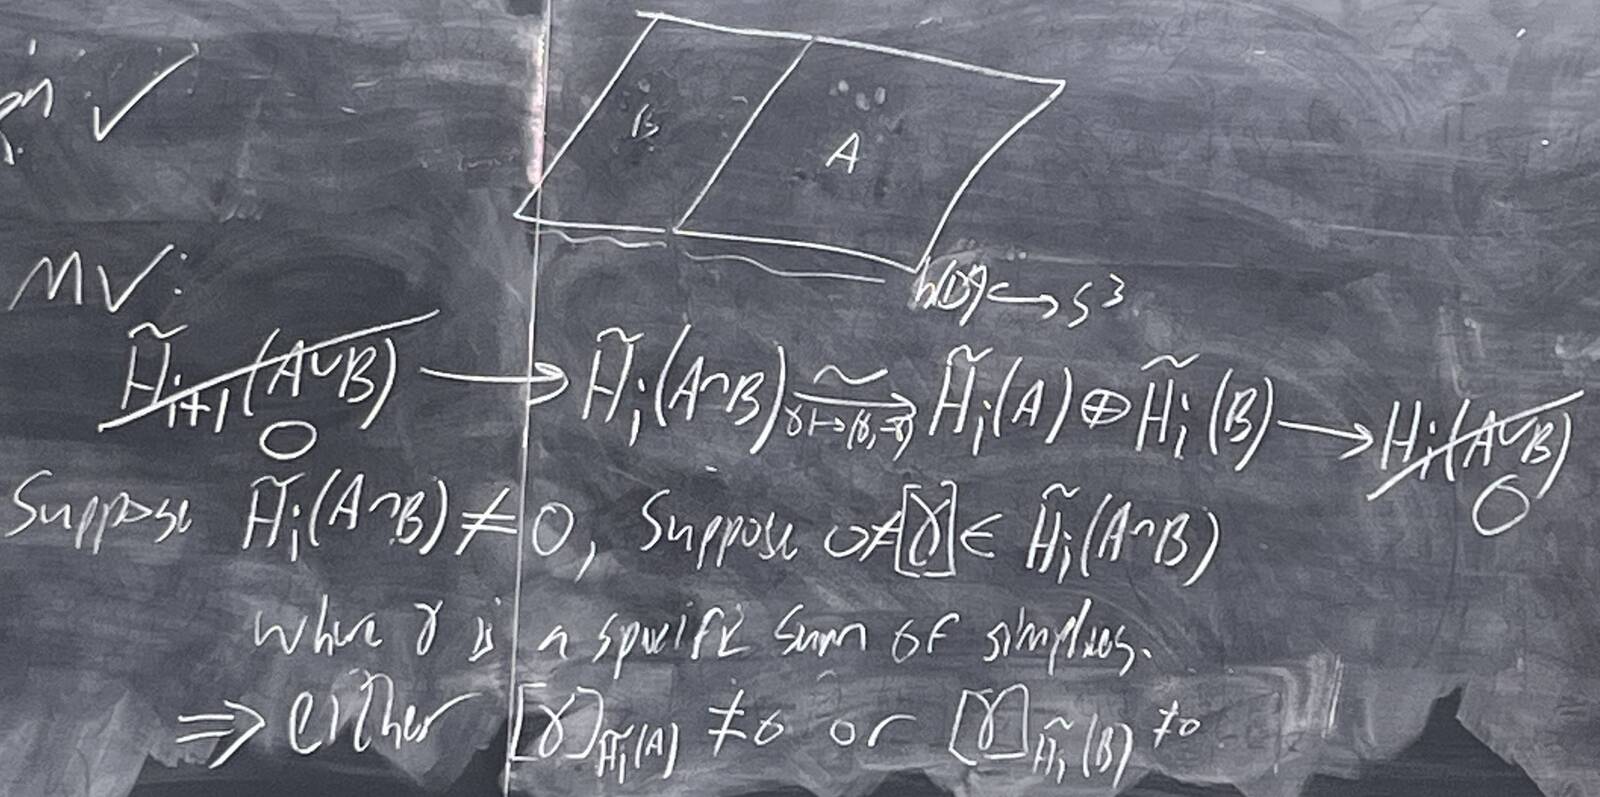 ✓
B
A
MV:
h(D^k) ↪ S^3
H̃_{i+1}(A∪B) → H̃_i(A∩B) ~→ H̃_i(A) ⊕ H̃_i(B) → H_i(A∪B)
γ ↦ (γ, -γ)
0
0
Suppose H̃_i(A∩B) ≠ 0, Suppose 0 ≠ [γ] ∈ H̃_i(A∩B)
where γ is a specific sum of simplices.
⇒ either [γ]_{H̃_i(A)} ≠ 0 or [γ]_{H̃_i(B)} ≠ 0